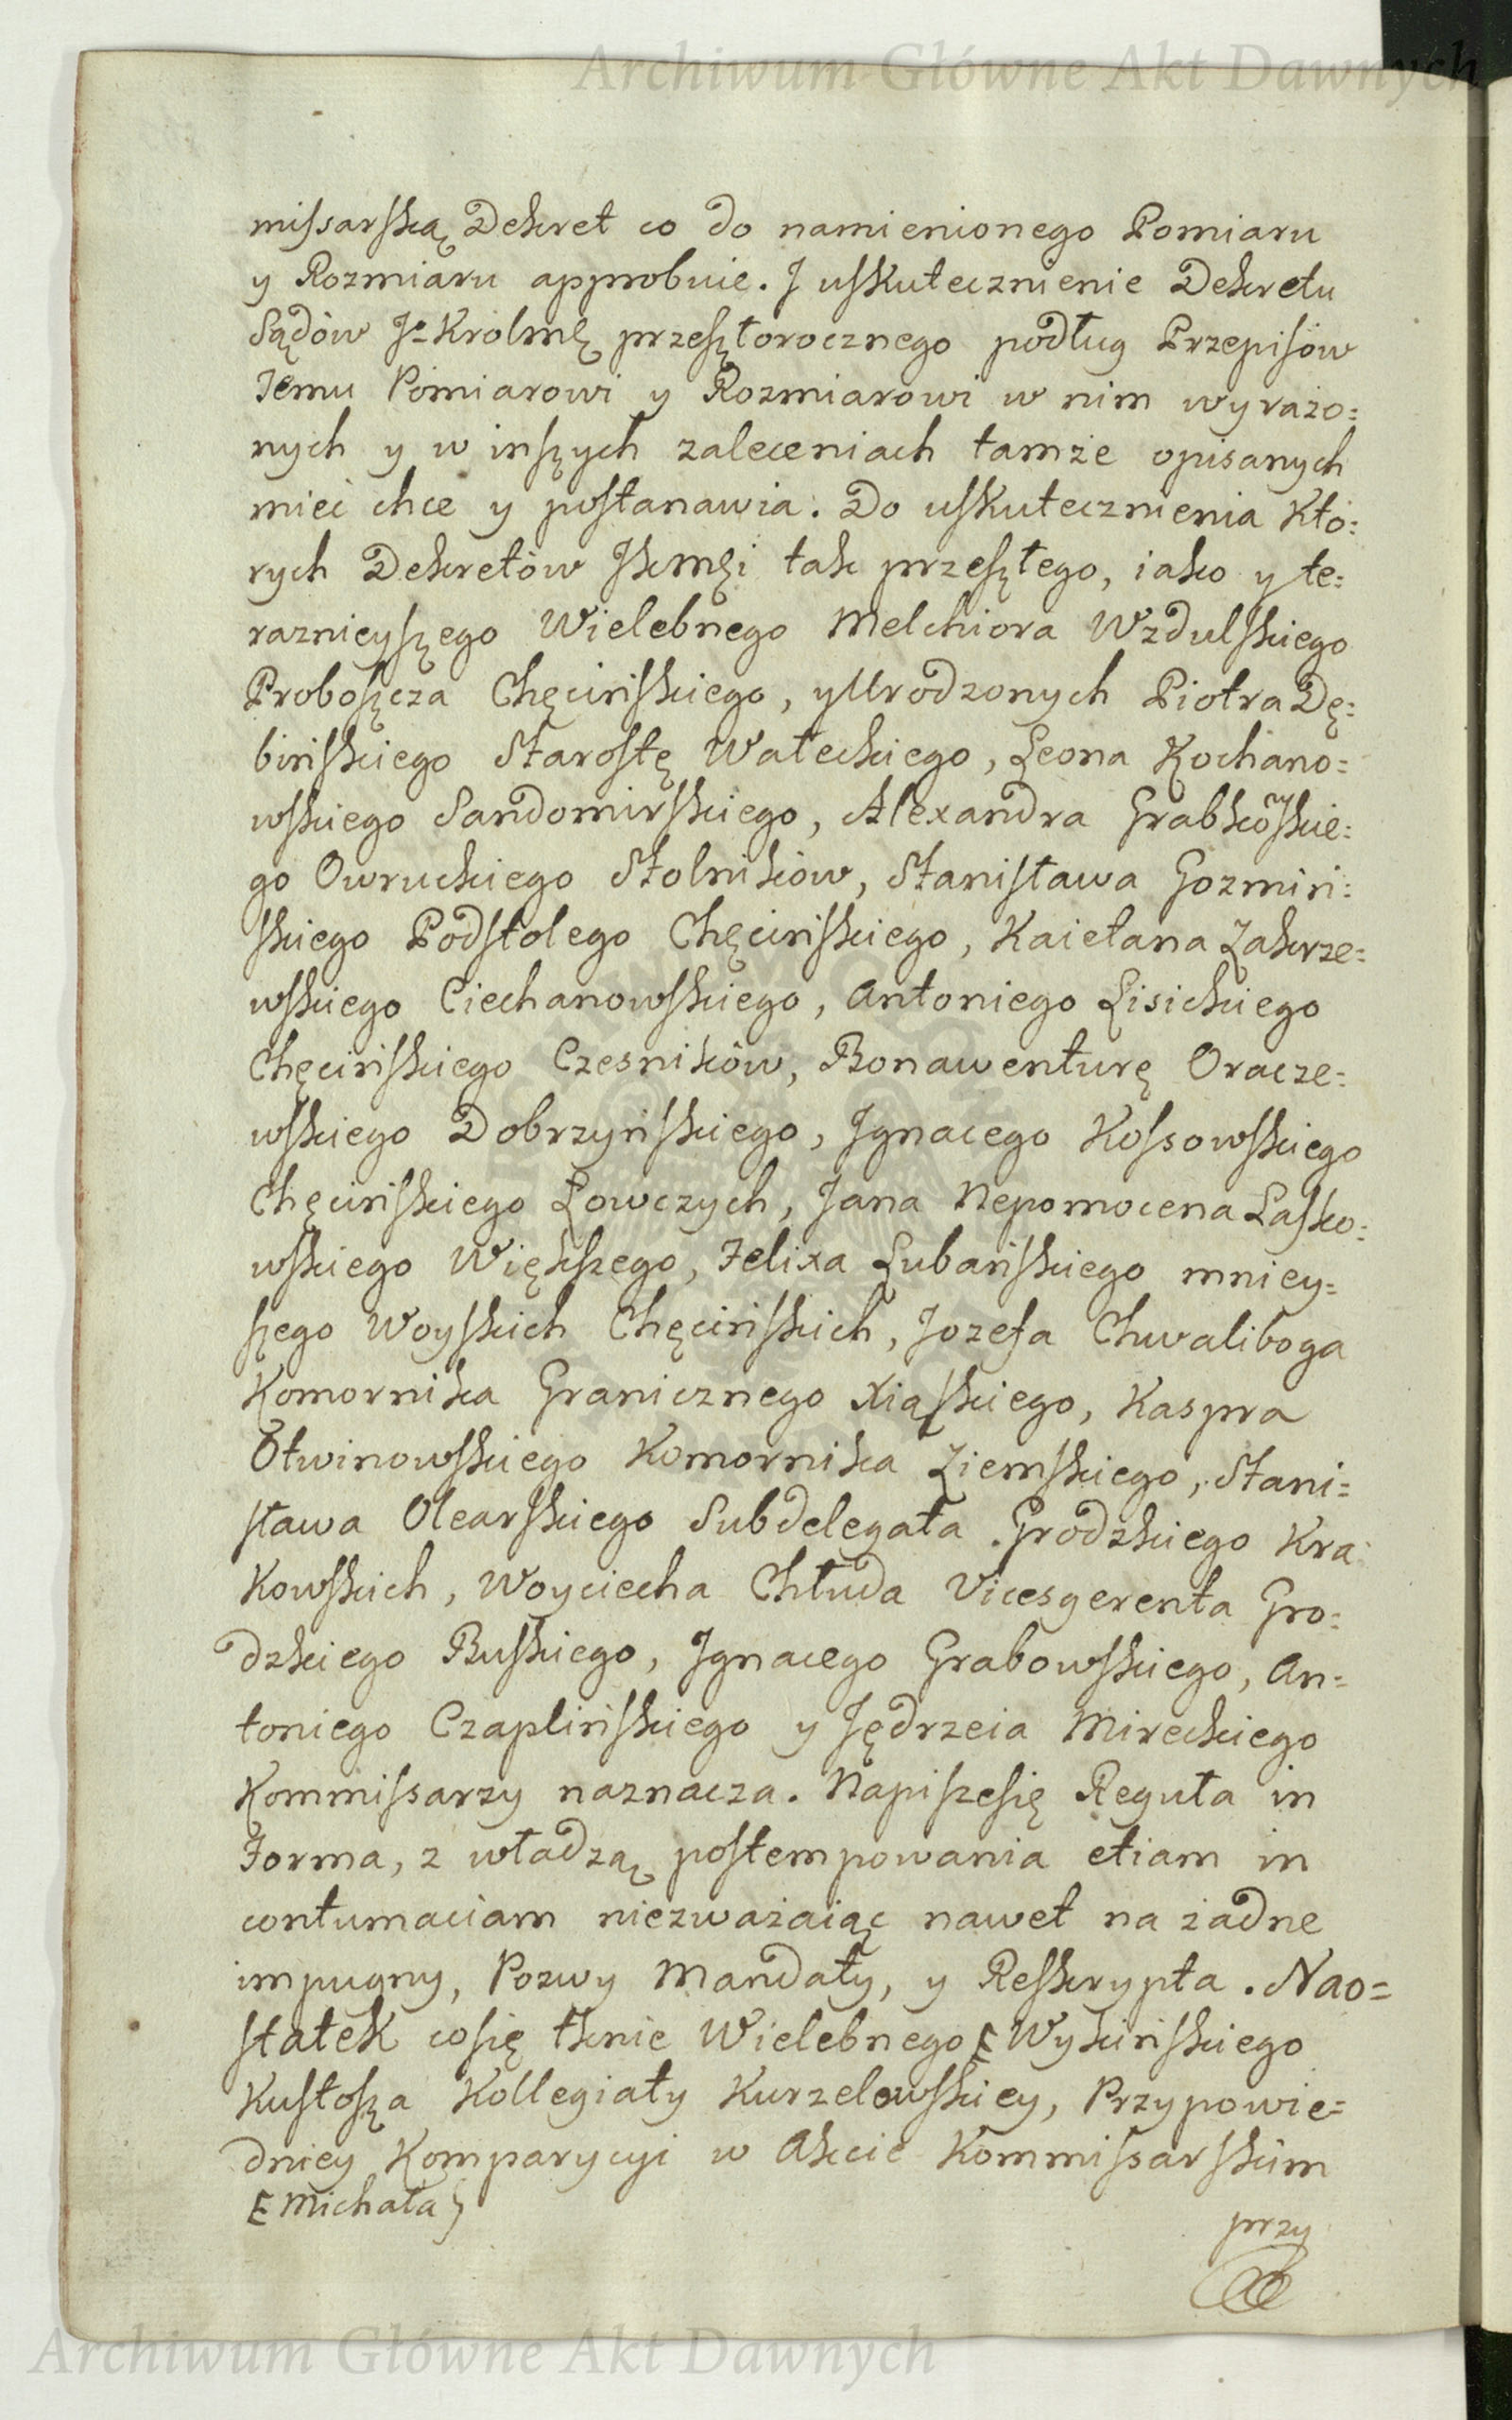 Archiwum Główne Akt Dawnych
missarską Dekret co do namienionego Pomiaru
y Rozmiaru approbuie. J uskutecznienie Dekretu
Sądów Jo Krolmę przeszłorocznego podług Przepisów
Temu Pomiarowi y Rozmiarowi w nim wyrażo=
nych y w inszych zaleceniach tamże opisanych
mieć chce y postanawia. Do uskutecznienia Któ=
rych Dekretów Jkmęi tak przeszłego, iako y te=
raznieyszego Wielebnego Melchiora Wzdulskiego
Proboszcza Chęcińskiego, y Urodzonych Piotra Dę=
bińskiego Starostę Wałeckiego, Leona Kochano=
wskiego Sandomirskiego, Alexandra Grabkowskie=
go Owruckiego Stolników, Stanisława Gozmiń=
skiego Podstolego Chęcińskiego, Kaietana Zakrze=
wskiego Ciechanowskiego, Antoniego Lisickiego
Chęcińskiego Czesników, Bonawenturę Oracze=
wskiego Dobrzyńskiego, Jgnacego Kossowskiego
Chęcińskiego Łowczych, Jana Nepomocena Lasko=
wskiego Większego, Felixa Lubańskiego mniey=
szego Woyskich Chęcińskich, Jozefa Chwaliboga
Komornika Granicznego Xiąskiego, Kaspra
Otwinowskiego Komornika Ziemskiego, Stani=
sława Olearskiego Subdelegata Grodzkiego Kra
Kowskich, Woyciecha Chłuda Vicesgerenta Gro=
dzkiego Buskiego, Jgnacego Grabowskiego, An=
toniego Czaplińskiego y Jędrzeia Mireckiego
Kommissarzy naznacza. Napisze się Reguła in
Forma, z władzą postempowania etiam in
contumaciam niezważaiąc nawet na żadne
impugny, Pozwy Mandaty, y Reskrypta. Nao=
statek co się tknie Wielebnego [ Wykińskiego
Kustosza Kollegiaty Kurzelowskiey, Przypowie=
dniey Komparycyi w Akcie Kommissarskim
[ Michała }
przy
Archiwum Główne Akt Dawnych